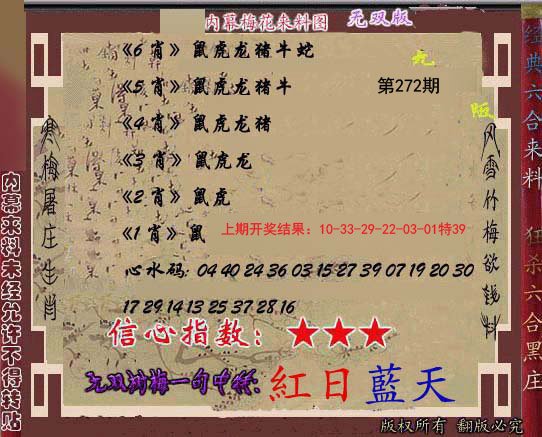 内幕梅花来料图 无双版
《6 肖》 鼠虎龙猪牛蛇
九
《5 肖》 鼠虎龙猪牛 第272期
陌
《4 肖》 鼠虎龙猪
《3 肖》 鼠虎龙
《2 肖》 鼠虎
《1 肖》 鼠 上期开奖结果：10-33-29-22-03-01特39
心水码: 04 40 24 36 03 15 27 39 07 19 20 30
17 29 14 13 25 37 28 16
信心指数：★★★
无双剑梅一句中特: 紅日藍天
寒梅屠庄生肖
风雪竹梅欲钱料
内幕来料未经允许不得转贴
经典六合来料 狂杀六合黑庄
版权所有 翻版必究